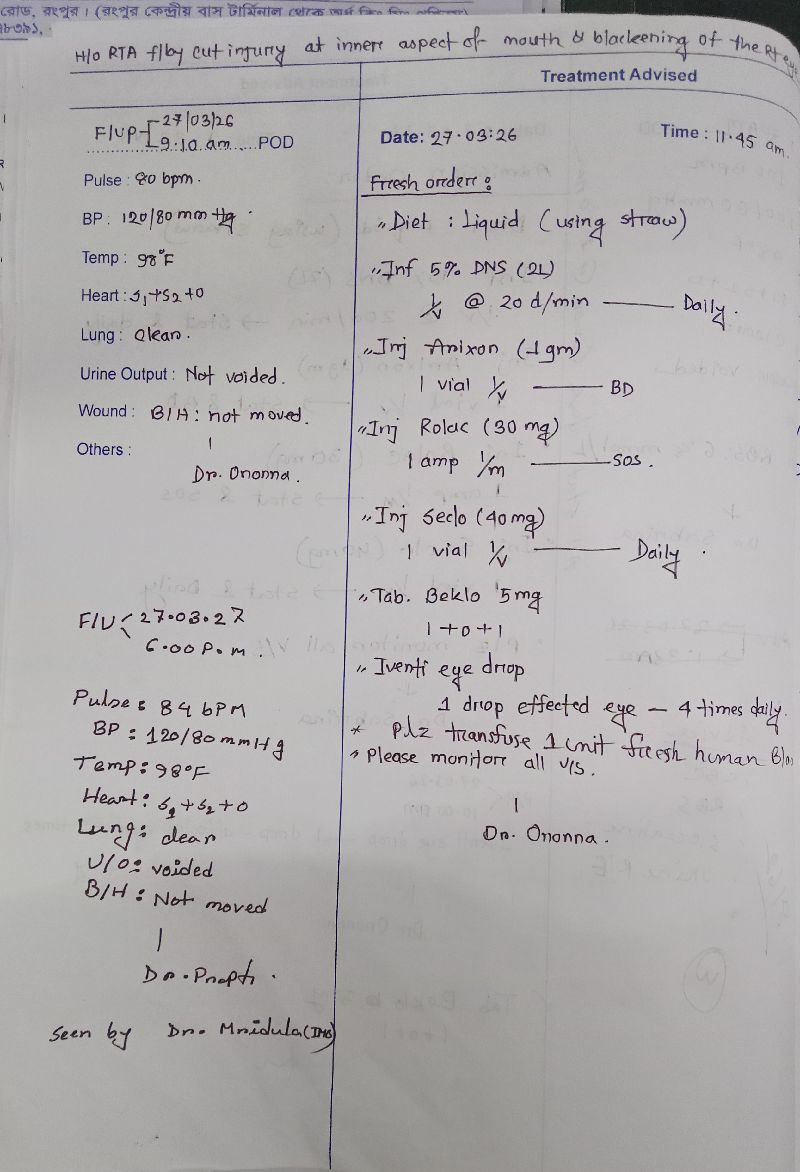 রোড, রংপুর। (রংপুর কেন্দ্রীয় বাস টার্মিনাল
H/O RTA f/by cut injury at inner aspect of mouth & blackening of the Rt eye
Treatment Advised
F/UP 27/03/26
9.10.am POD
Pulse : 80 bpm.
BP : 120/80 mm Hg
Temp : 98°F
Heart : S1+S2+0
Lung : Clear.
Urine Output : Not voided.
Wound : B/H : not moved.
Others :
Dr. Ononna.
F/U 27.03.27
6.00 P.m.
Pulse : 84 bPM
BP : 120/80 mmHg
Temp : 98°F
Heart : S1+S2+0
Lung : clear
U/O : voided
B/H : Not moved
Dr. Prapti.
Seen by Dr. Mridula (IMO)
Date: 27.03.26 Time : 11.45 am.
Fresh order :
" Diet : Liquid (using straw)
" Inf 5% DNS (2L)
I/V @ 20 d/min — Daily.
" Inj Arixon (1 gm)
1 vial I/V — BD
" Inj Rolac (30 mg)
1 amp I/m — SOS.
" Inj Seclo (40mg)
1 vial I/V — Daily.
" Tab. Beklo 5mg
1+0+1
" Iventi eye drop
1 drop effected eye — 4 times daily.
* Plz transfuse 1 unit fresh human Bloo
" Please monitor all V/S.
Dr. Ononna.